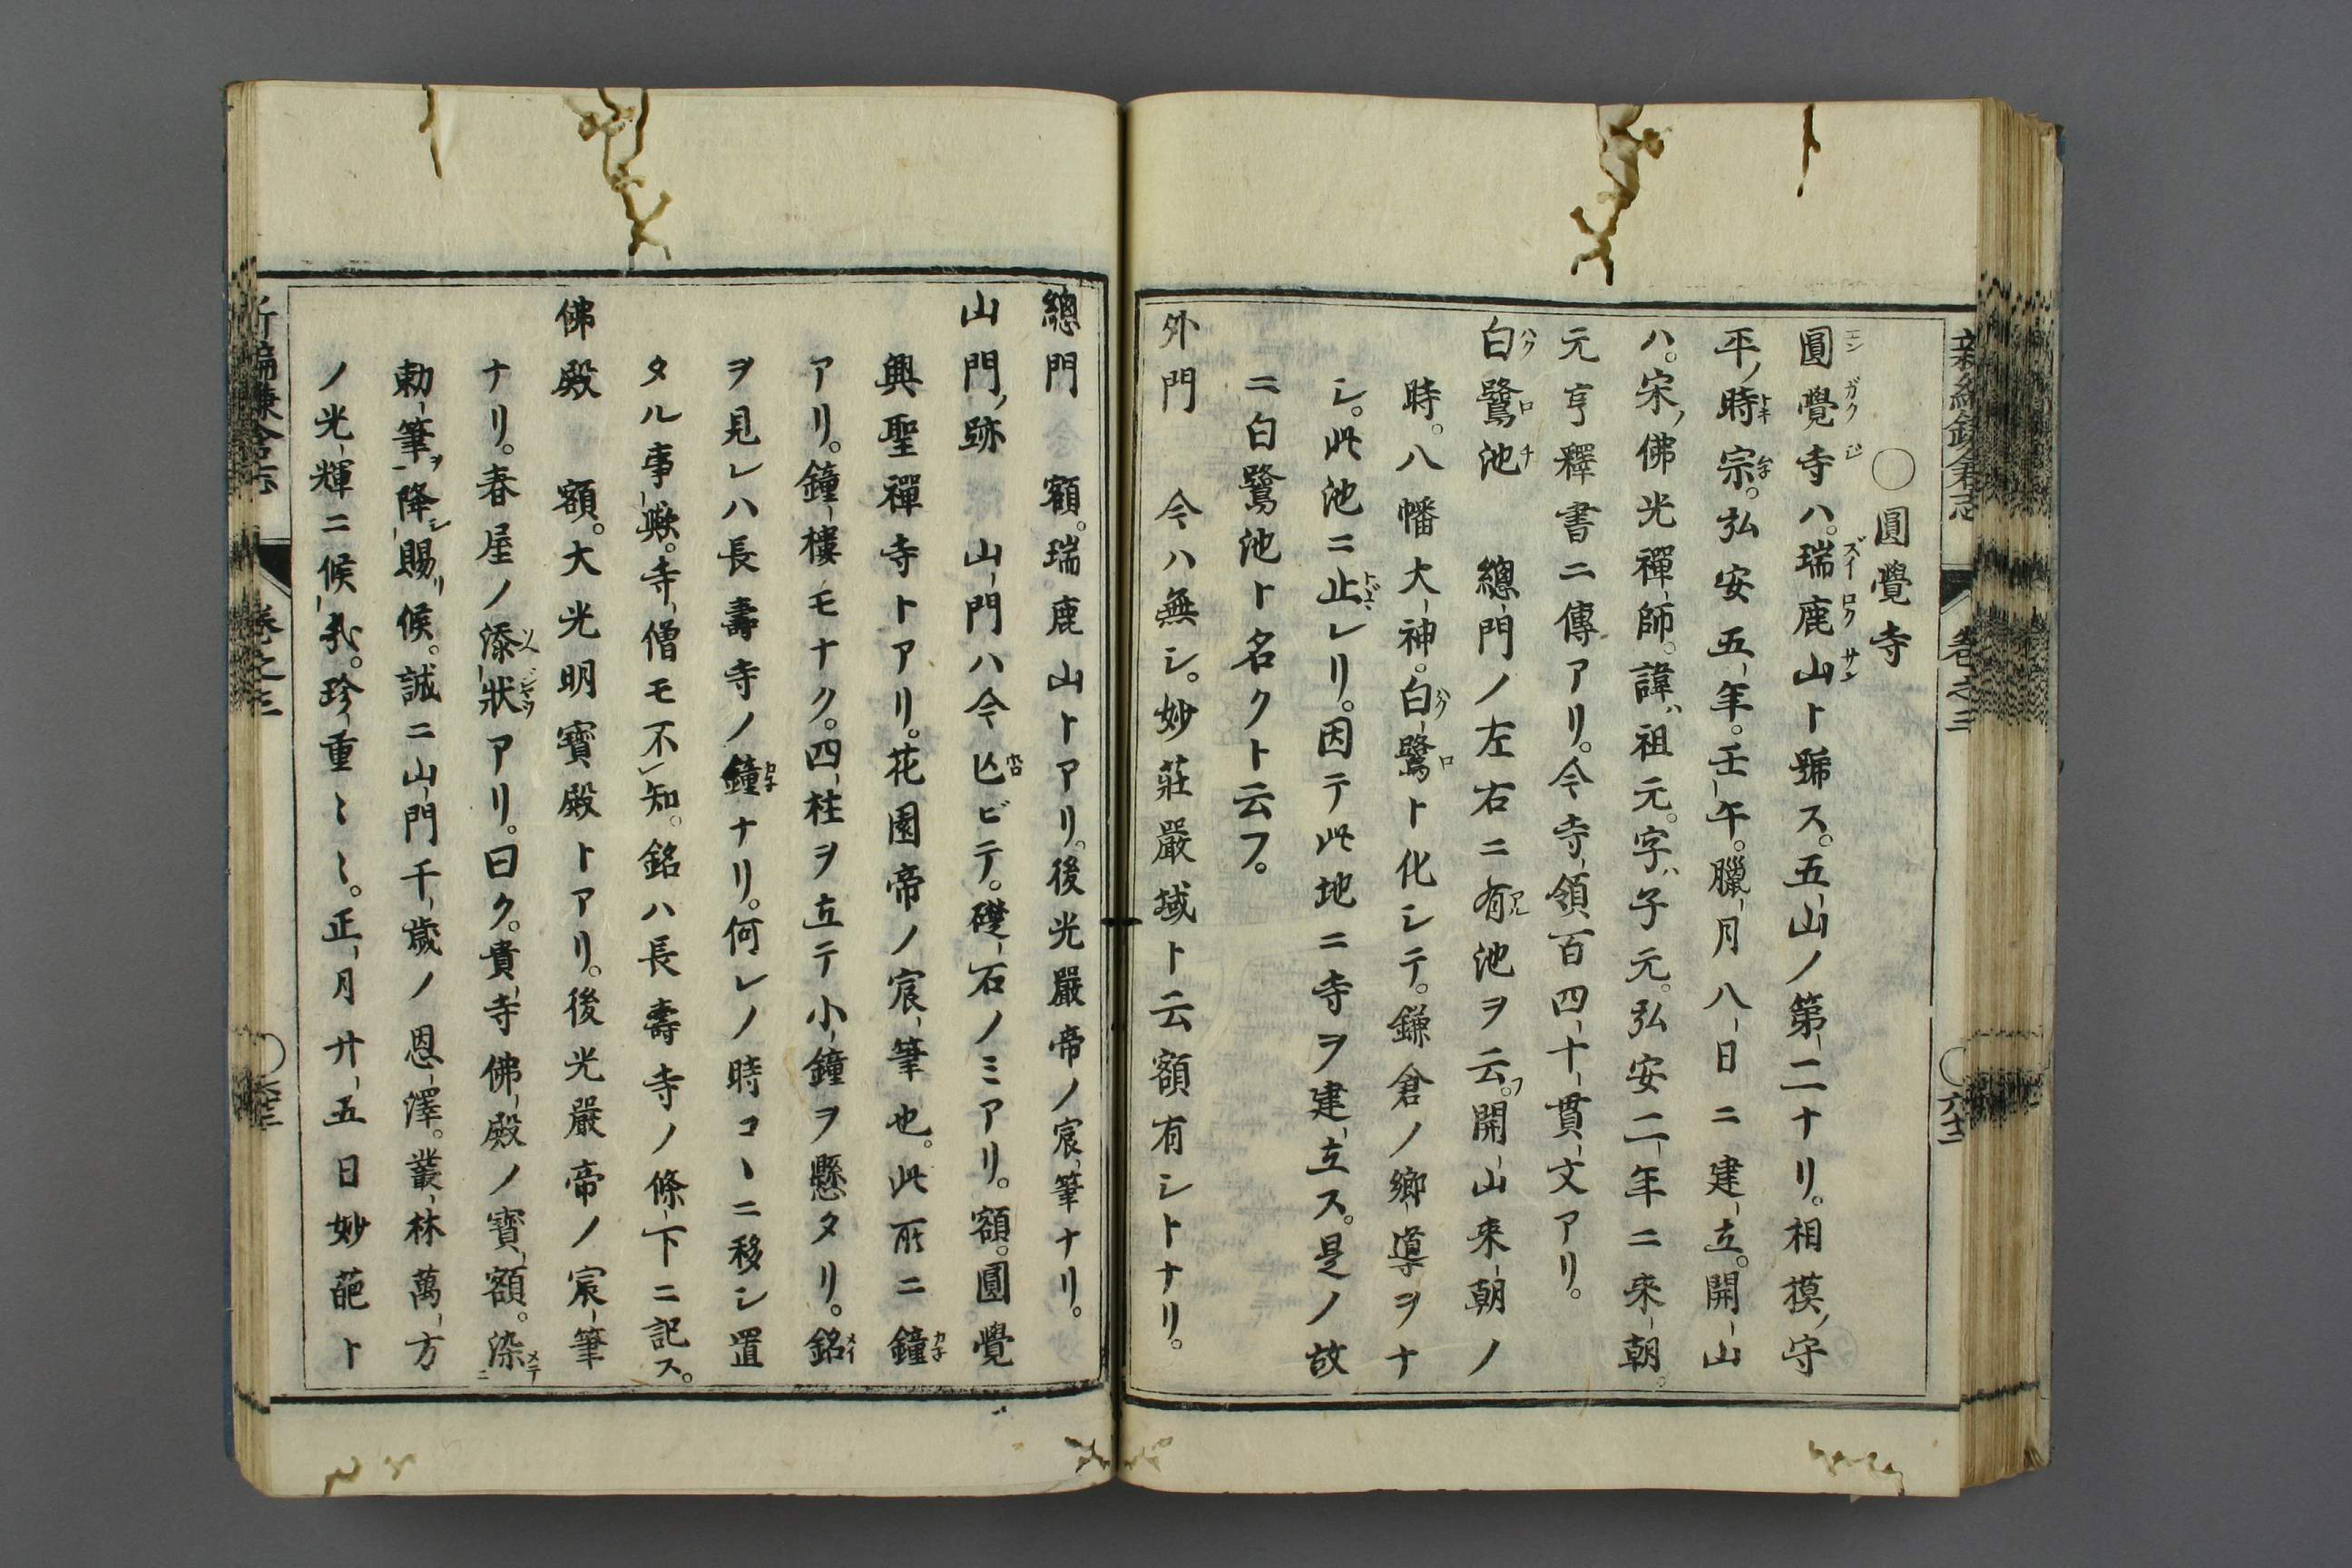 ○圓覺寺
圓覺寺ハ。瑞鹿山ト號ス。五山ノ第二ナリ。相摸ノ守
平ノ時宗。弘安五年。壬午。臘月八日ニ建立。開山
ハ。宋ノ佛光禪師。諱ハ祖元。字ハ子元。弘安二年ニ來朝。
元亨釋書ニ傳アリ。今寺領百四十貫文アリ。
白鷺池 總門ノ左右ニ有池ヲ云フ。開山来朝ノ
時。八幡大神。白鷺ト化シテ。鎌倉ノ鄉導ヲナ
シ。此池ニ止レリ。因テ此地ニ寺ヲ建立ス。是ノ故
ニ白鷺池ト名クト云フ。
外門 今ハ無シ。妙莊嚴域ト云額有シトナリ。
總門 額。瑞鹿山トアリ。後光嚴帝ノ宸筆ナリ。
山門ノ跡 山門ハ今亾ビテ。礎石ノミアリ。額。圓覺
興聖禪寺トアリ。花園帝ノ宸筆也。此所ニ鐘
アリ。鐘樓モナク。四柱ヲ立テ小鐘ヲ懸タリ。銘
ヲ見レハ長壽寺ノ鐘ナリ。何レノ時コヽニ移シ置
タル事歟。寺僧モ不知。銘ハ長壽寺ノ條下ニ記ス。
佛殿 額。大光明寶殿トアリ。後光嚴帝ノ宸筆
ナリ。春屋ノ添狀アリ。曰ク。貴寺佛殿ノ寶額。染
勅筆ヲ降シ賜リ候。誠ニ山門千歲ノ恩澤。叢林萬方
ノ光輝ニ候哉。珍重〻〻。正月廿五日妙葩ト
新編鎌倉志 卷之三